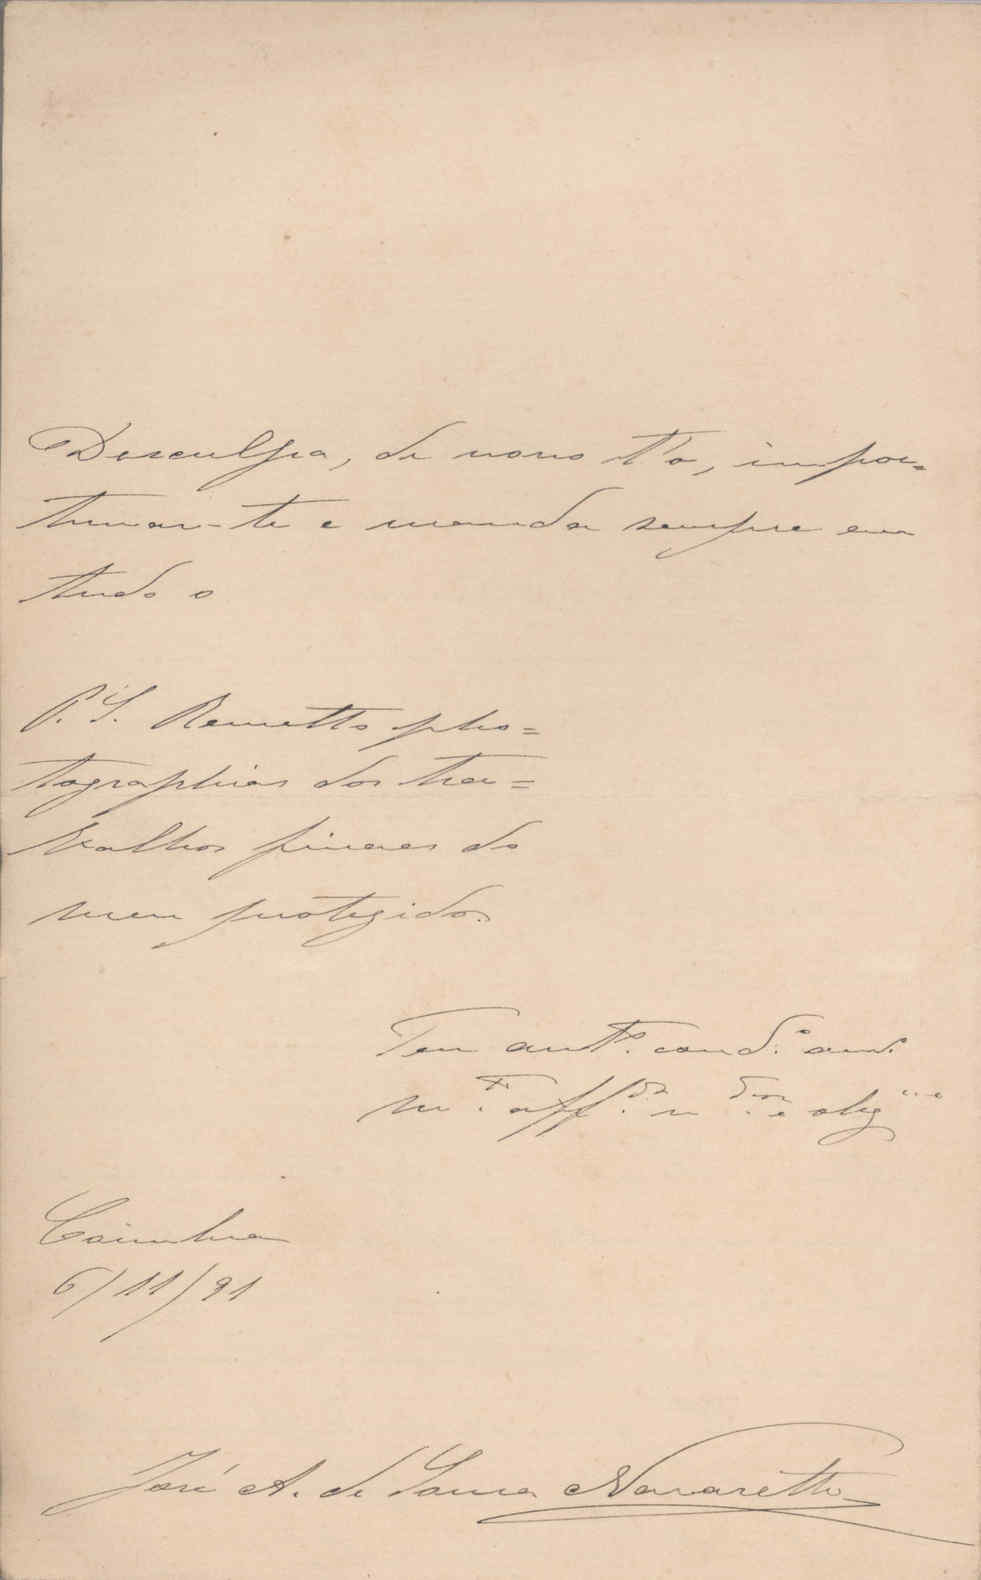 Desculpa, de novo t'o, impor-
tunar-te e manda sempre em
tudo o
P. S. Remetto pho=
tographias dos tra=
balhos finaes do
meu protegido.
Teu ant.º cond.º am.º
m.to aff.do e obg.mo
Coimbra
6/11/91
José A. de Sousa Nazareth